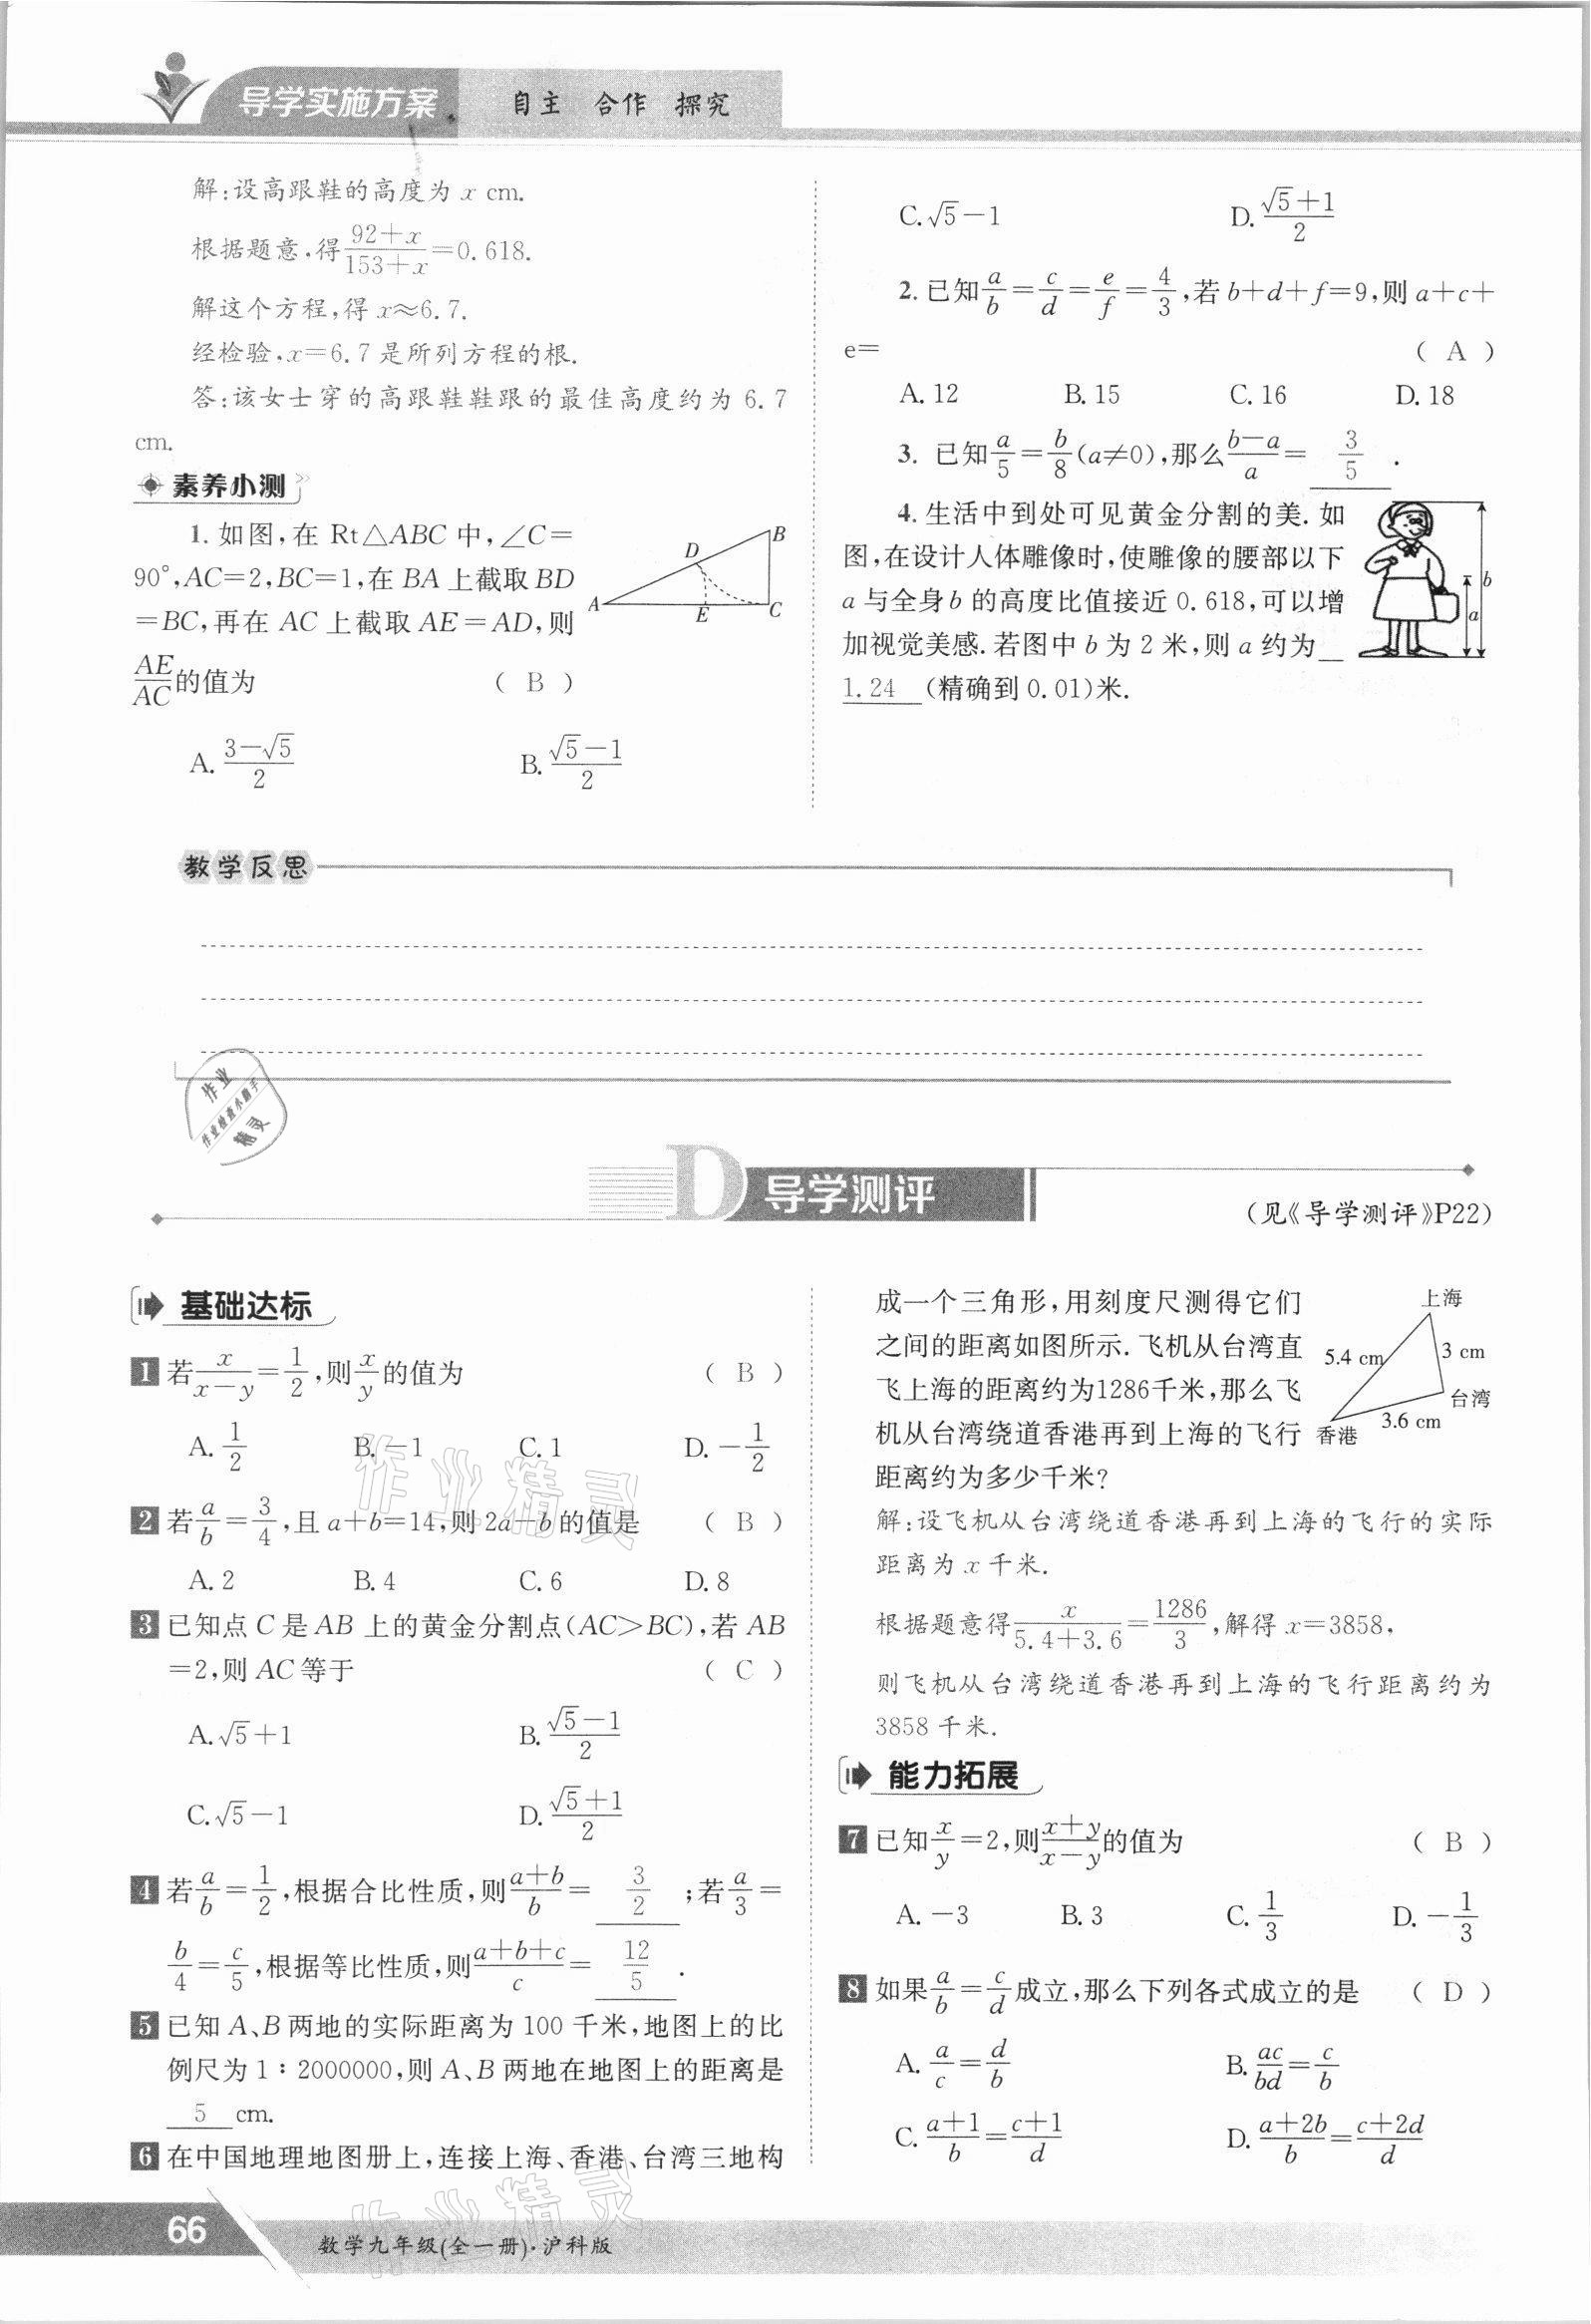 导学实施方案 自主 合作 探究
解:设高跟鞋的高度为 x cm.
根据题意,得(92+x)/(153+x)=0.618.
解这个方程,得 x≈6.7.
经检验,x=6.7 是所列方程的根.
答:该女士穿的高跟鞋鞋跟的最佳高度约为 6.7
cm.
素养小测
1. 如图,在 Rt△ABC 中,∠C=
90°,AC=2,BC=1,在 BA 上截取 BD
=BC,再在 AC 上截取 AE=AD,则
AE/AC的值为 ( B )
A. (3-√5)/2 B. (√5-1)/2
A D B E C
C. √5-1 D. (√5+1)/2
2. 已知a/b=c/d=e/f=4/3,若 b+d+f=9,则 a+c+
e= ( A )
A. 12 B. 15 C. 16 D. 18
3. 已知a/5=b/8(a≠0),那么(b-a)/a= 3/5 .
4. 生活中到处可见黄金分割的美. 如
图,在设计人体雕像时,使雕像的腰部以下
a 与全身 b 的高度比值接近 0.618,可以增
加视觉美感. 若图中 b 为 2 米,则 a 约为
1.24 (精确到 0.01)米.
b
a
教学反思
作业
作业检查小助手
精灵
D 导学测评
(见《导学测评》P22)
基础达标
1 若x/(x-y)=1/2,则x/y的值为 ( B )
A. 1/2 B. -1 C. 1 D. -1/2
2 若a/b=3/4,且 a+b=14,则 2a-b 的值是 ( B )
A. 2 B. 4 C. 6 D. 8
3 已知点 C 是 AB 上的黄金分割点(AC>BC),若 AB
=2,则 AC 等于 ( C )
A. √5+1 B. (√5-1)/2
C. √5-1 D. (√5+1)/2
4 若a/b=1/2,根据合比性质,则(a+b)/b= 3/2 ;若a/3=
b/4=c/5,根据等比性质,则(a+b+c)/c= 12/5 .
5 已知 A、B 两地的实际距离为 100 千米,地图上的比
例尺为 1∶2000000,则 A、B 两地在地图上的距离是
5 cm.
6 在中国地理地图册上,连接上海、香港、台湾三地构
成一个三角形,用刻度尺测得它们
之间的距离如图所示. 飞机从台湾直
飞上海的距离约为1286千米,那么飞
机从台湾绕道香港再到上海的飞行
距离约为多少千米?
上海
5.4 cm 3 cm
台湾
3.6 cm
香港
解:设飞机从台湾绕道香港再到上海的飞行的实际
距离为 x 千米.
根据题意得x/(5.4+3.6)=1286/3,解得 x=3858,
则飞机从台湾绕道香港再到上海的飞行距离约为
3858 千米.
能力拓展
7 已知x/y=2,则(x+y)/(x-y)的值为 ( B )
A. -3 B. 3 C. 1/3 D. -1/3
8 如果a/b=c/d成立,那么下列各式成立的是 ( D )
A. a/c=d/b B. ac/bd=c/b
C. (a+1)/b=(c+1)/d D. (a+2b)/b=(c+2d)/d
作业精灵
作业精灵
66 数学九年级(全一册)·沪科版